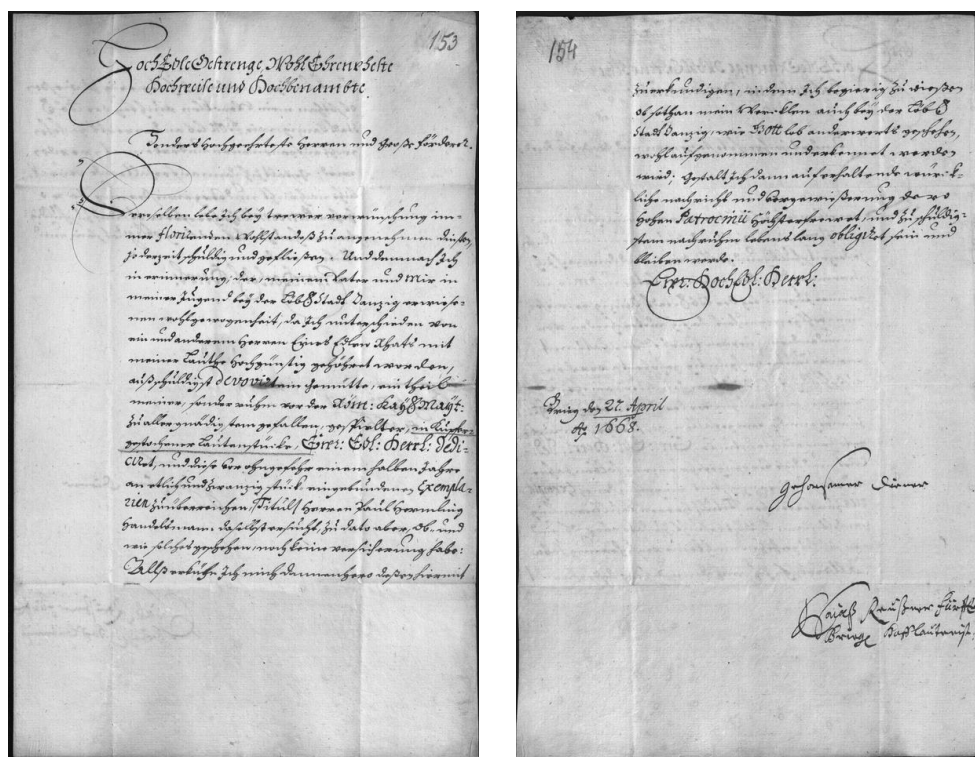 153
HochEdle Gestrenge, WohlEhrenveste
Hochweise und Hochbenambte.
Besonders Hochgeehrteste Herren und Große Förderer.
Denenselben lebe ich bey treuer verwünschung im-
mer florirenden Wohlstandeß zu angenehmen diensten
jederzeit schuldig und gefließen. Und demnach Ich
in erinnerung, der, meinem Vater und Mir in
meiner Jugend bey der Löbl. Stadt Danzig erwiese-
nen wohlgewogenheit, da Ich unterschieden von
ein und anderem Herren Eines Edlen Rhats mit
meiner Lauthe Hochgünstig gehöhret worden,
auß schuldigst devovirtem Gemütte, ein theil
meiner, sonder ruhm vor der Röm: Kay. Mayt:
zu aller gnädigstem gefallen, gespielter, in Kupfer
gestochener Lautenstücke, Eurer: Edl: Herrl: Dedi-
ciret, und diese vor ohngefehr einem halben Jahre
an etlich und zwanzig stück eingebundenen Exempla-
rien zu überreichen, Titul: Herren Paul Hermling
Handelsmann daselbst ersucht, zu dato aber, ob und
wie solches geschehen, noch keine versicherung habe:
Alß erkühne Ich mich dannenhero deßen hiermit
154
zu erkundigen, indem Ich begierig zu wießen
ob sothan mein Wercklen auch bey der Löbl.
Stadt Danzig, wie Gott lob anderwerts geschehen,
wohl aufgenommen und erkennet worden
wird; Gestalt Ich dann auf erhaltende würck-
liche nachricht und vergewießerung dero
hohen Patrocinii höchsterfreuet, und zu schuldig-
stem nachruhm lebens lang obligiret sein und
bleiben werde.
Eurer: HochEdl: Herrl:
Brieg den 27. April
Ao. 1668.
Gehorsamer Diener
Esaias Reußner Fürstl.
Briegl. Hofflautenist.